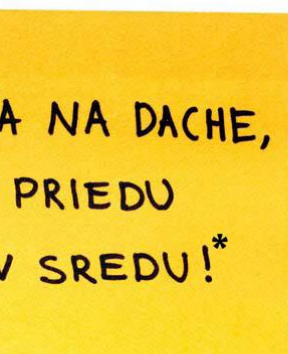 A NA DACHE,
PRIEDU
V SREDU!*